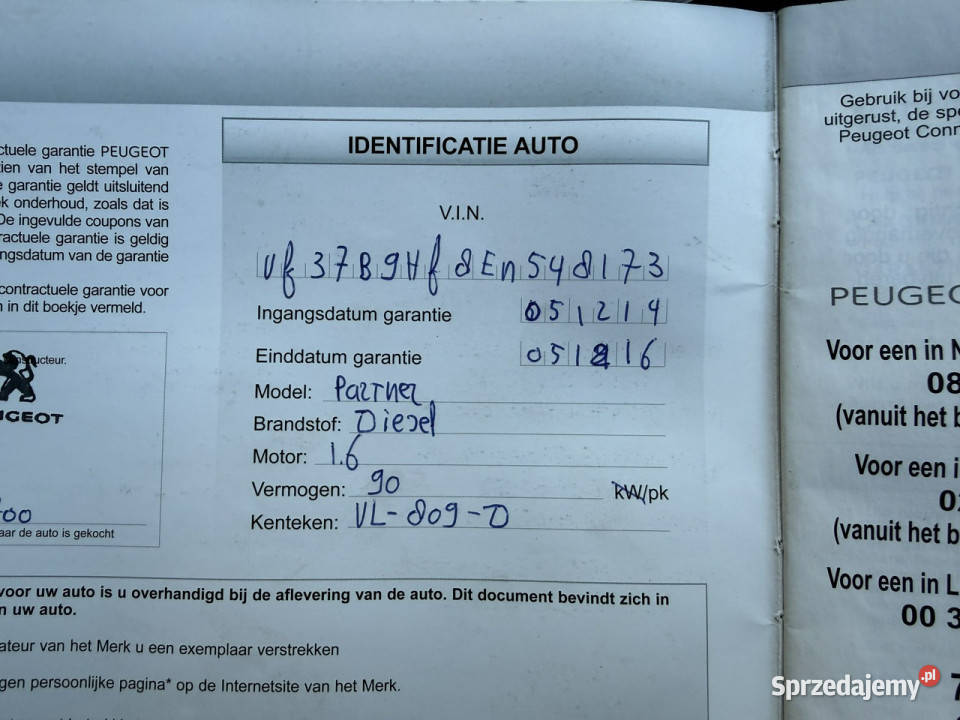 ctuele garantie PEUGEOT
ien van het stempel van
e garantie geldt uitsluitend
ek onderhoud, zoals dat is
De ingevulde coupons van
ractuele garantie is geldig
ngsdatum van de garantie
contractuele garantie voor
n in dit boekje vermeld.
structeur.
UGEOT
00
aar de auto is gekocht
IDENTIFICATIE AUTO
V.I.N.
Vf37B9Hf8En548173
Ingangsdatum garantie 051214
Einddatum garantie 051216
Model: Partner
Brandstof: Diesel
Motor: 1.6
Vermogen: 90 kW/pk
Kenteken: VL-809-D
voor uw auto is u overhandigd bij de aflevering van de auto. Dit document bevindt zich in
n uw auto.
ateur van het Merk u een exemplaar verstrekken
gen persoonlijke pagina* op de Internetsite van het Merk.
Gebruik bij vo
uitgerust, de spe
Peugeot Conn
PEUGEO
Voor een in N
08
(vanuit het b
Voor een i
02
(vanuit het b
Voor een in L
00 3
7
Sprzedajemy.pl